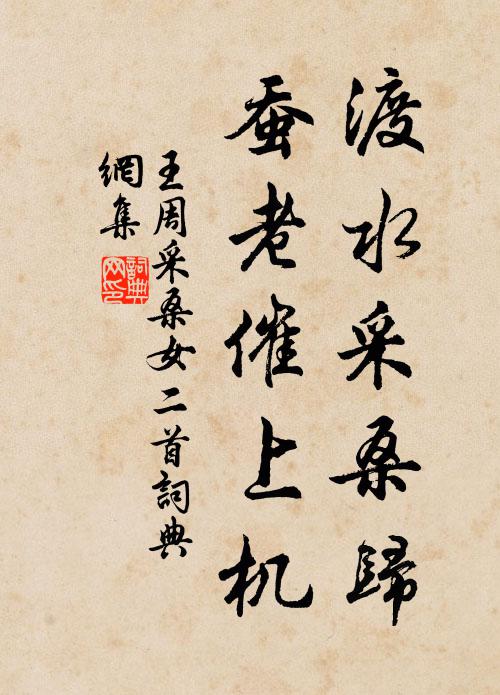 渡水采桑歸
蚕老催上机
王周采桑女二首詞典
網集
詞典
网印